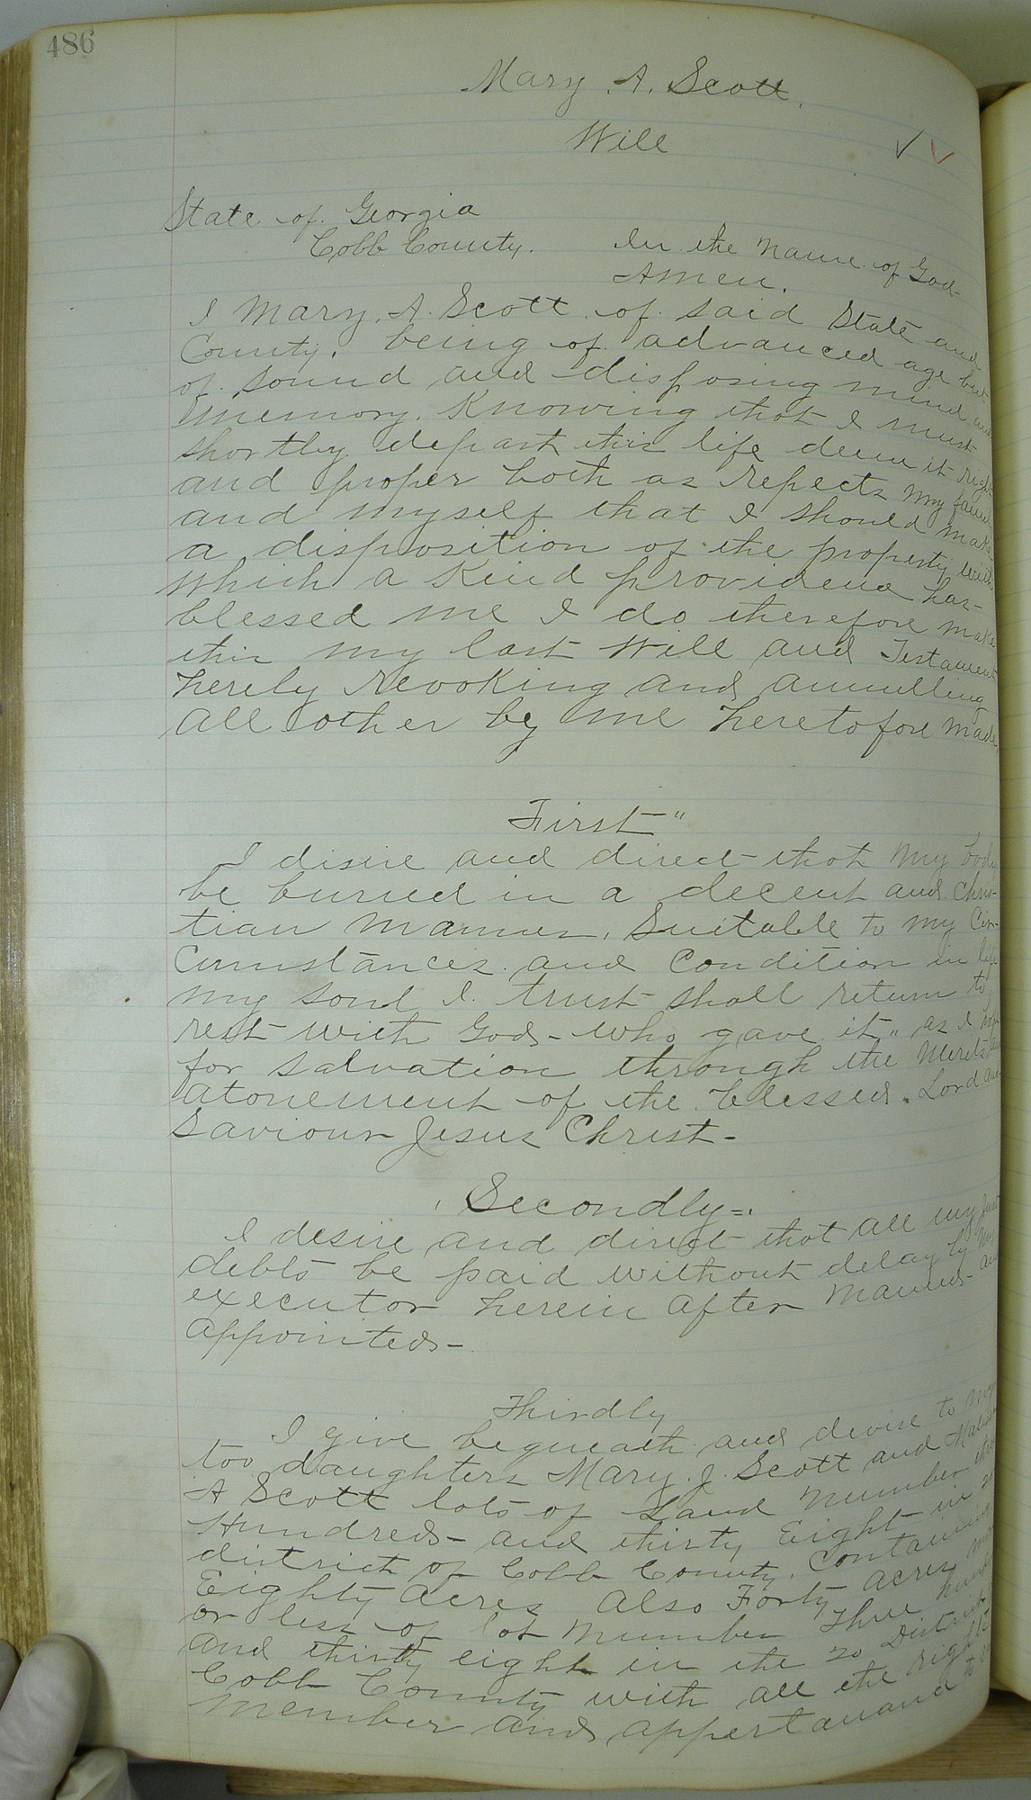 486
Mary. A. Scott.
Will
State of Georgia
Cobb County. In the Name of God
Amen.
I Mary. A. Scott of said State and
County. being of advanced age but
of sound and disposing mind and
memory. Knowing that I must
shortly depart this life deem it right
and proper both as repects my family
and myself that I should make
a disposition of the property with
which a Kind providence has-
blessed me I do therefore make
this my last Will and Testament
hereby Revoking and annulling
all other by me heretofore made.
First"
I disire and direct that my body
be buried in a decent and Chris-
tian manner. Suitable to my Cir-
cumstances and Condition in life
my soul I trust shall return to
rest with God- who gave it" as I hope
for salvation through the Merits and
atonement of the blessed. Lord and
Saviour Jesus Christ-
Secondly=.
I desire and direct that all my just
debts be paid without delay by my
executor herein after named and
appointed-
Thirdly
I give bequeath and devise to my
too daughters Mary. J. Scott and
A Scott lots of Land Number three
Hundred- and thirty Eight in 20
district of Cobb County. Containing
Eighty acres also Forty acres more
or less of lot Number Three hund
and thirty eight in the 20 District
Cobb County with all the rights
member and appertanand to